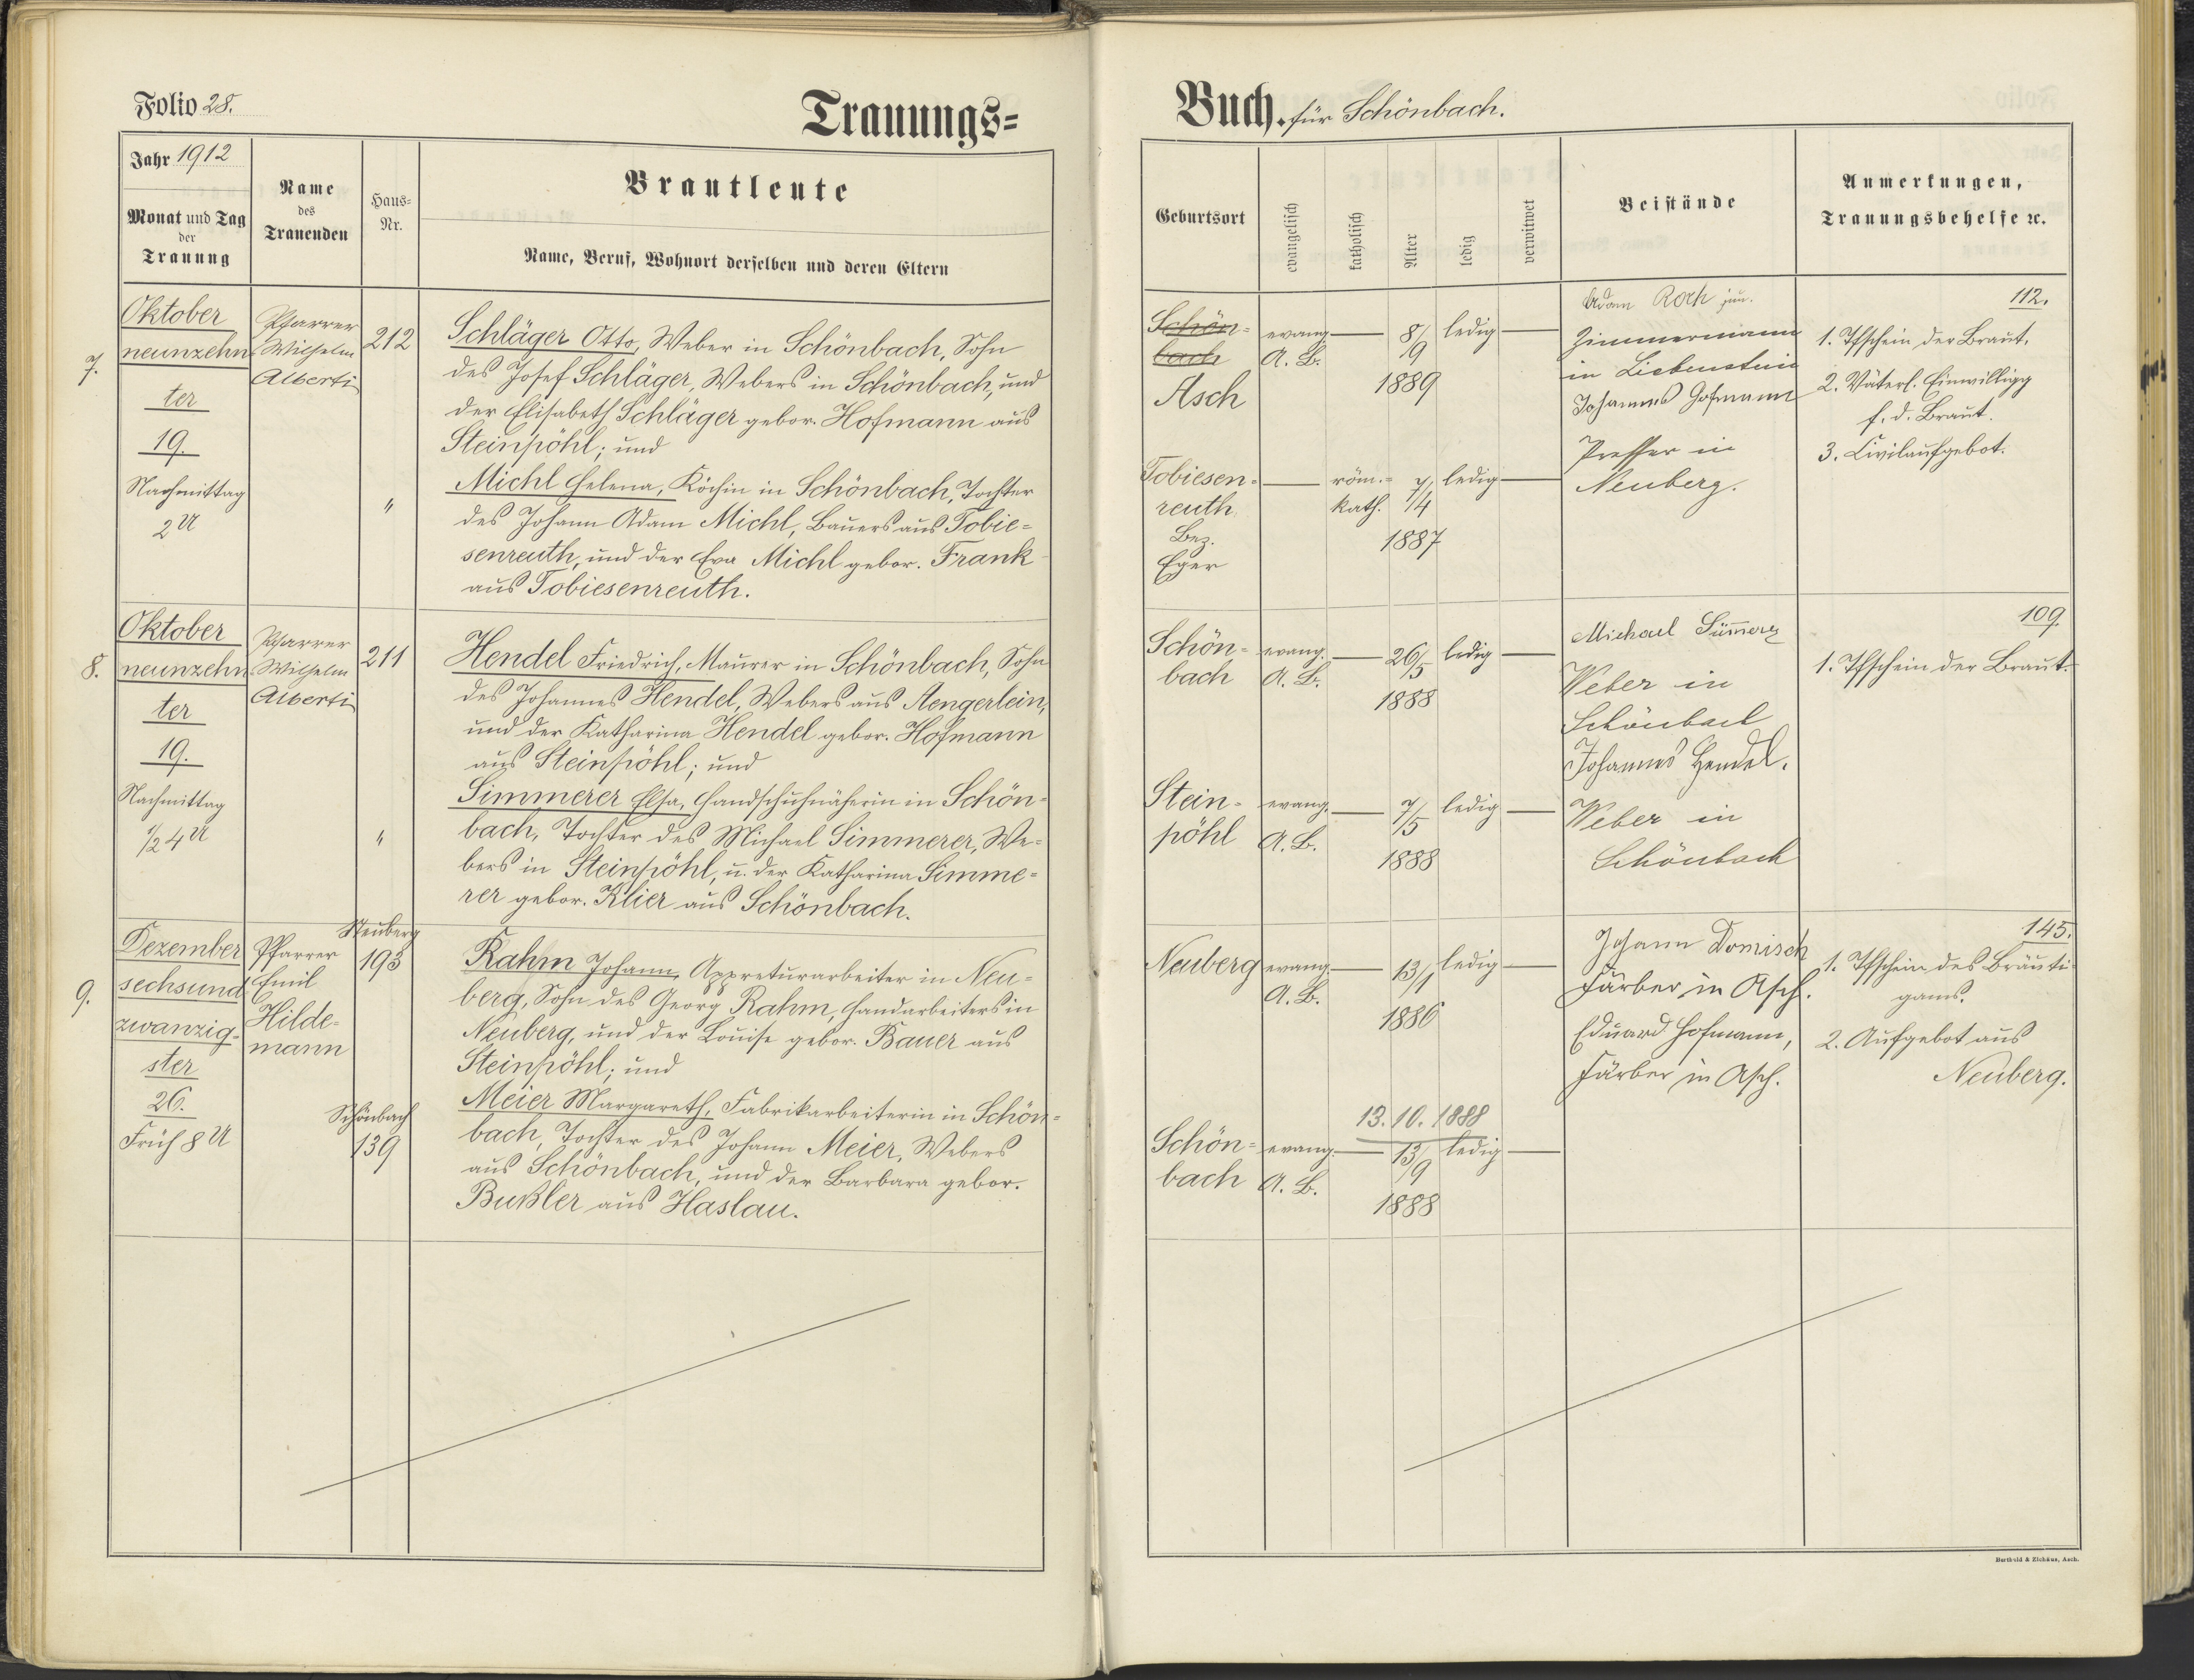 Folio 28.
Trauungs=
Jahr 1912
Monat und Tag
der
Trauung
Name
des
Trauenden
Haus=
Nr.
Brautleute
Name, Beruf, Wohnort derselben und deren Eltern
7.
Oktober
neunzehn
ter
19.
Nachmittag
2 U
Pfarrer
Wilhelm
Alberti
212
"
Schläger Otto, Weber in Schönbach, Sohn
des Josef Schläger, Webers in Schönbach, und
der Elisabeth Schläger gebor. Hofmann aus
Steinpöhl; und
Michl Helena, Köchin in Schönbach, Tochter
des Johann Adam Michl, Bauers aus Tobie=
senreuth, und der Eva Michl gebor. Frank
aus Tobiesenreuth.
8.
Oktober
neunzehn
ter
19.
Nachmittag
1/2 4 U
Pfarrer
Wilhelm
Alberti
211
"
Hendel Friedrich, Maurer in Schönbach, Sohn
des Johannes Hendel, Webers aus Aengerlein,
und der Katharina Hendel gebor. Hofmann
aus Steinpöhl; und
Simmerer Elsa, Handschuhnäherin in Schön=
bach, Tochter des Michael Simmerer, We=
bers in Steinpöhl, u. der Katharina Simme=
rer gebor. Klier aus Schönbach.
9.
Dezember
sechsund
zwanzig=
ster
26.
Früh 8 U
Pfarrer
Emil
Hilde=
mann
Neuberg
193
Schönbach
139
Rahm Johann, Appreturarbeiter in Neu=
berg, Sohn des Georg Rahm, Handarbeiters in
Neuberg, und der Louise gebor. Bauer aus
Steinpöhl; und
Meier Margareth, Fabrikarbeiterin in Schön=
bach, Tochter des Johann Meier, Webers
aus Schönbach, und der Barbara gebor.
Bußler aus Haslau.
Buch. für Schönbach.
Geburtsort
evangelisch
katholisch
Alter
ledig
verwitwet
Beistände
Anmerkungen,
Trauungsbehelfe ꝛc.
Schön=
bach
Asch
evang.
A. B.
8/9
1889
ledig
Tobiesen=
reuth
Bez.
Eger
röm.=
kath.
7/4
1887
ledig
Adam Roch jun.
Zimmermann
in Liebenstein
Johannes Hofmann
Presser in
Neuberg.
112.
1. Tfschein der Braut.
2. Väterl. Einwilligg
f. d. Braut.
3. Civilaufgebot.
Schön=
bach
evang.
A. B.
26/5
1888
ledig
Stein=
pöhl
evang.
A. B.
7/5
1888
ledig
Michael
Weber in
Schönbach
Johannes Hendel.
Weber in
Schönbach
109.
1. Tfschein der Braut.
Neuberg
evang.
A. B.
13/1
1886
ledig
Schön=
bach
evang.
A. B.
13. 10. 1888
13/9
1888
ledig
Johann Domisch
Färber in Asch.
Eduard Hofmann,
Färber in Asch.
145.
1. Tfschein des Bräuti=
gams.
2. Aufgebot aus
Neuberg.
Berthold & Zichäus, Asch.